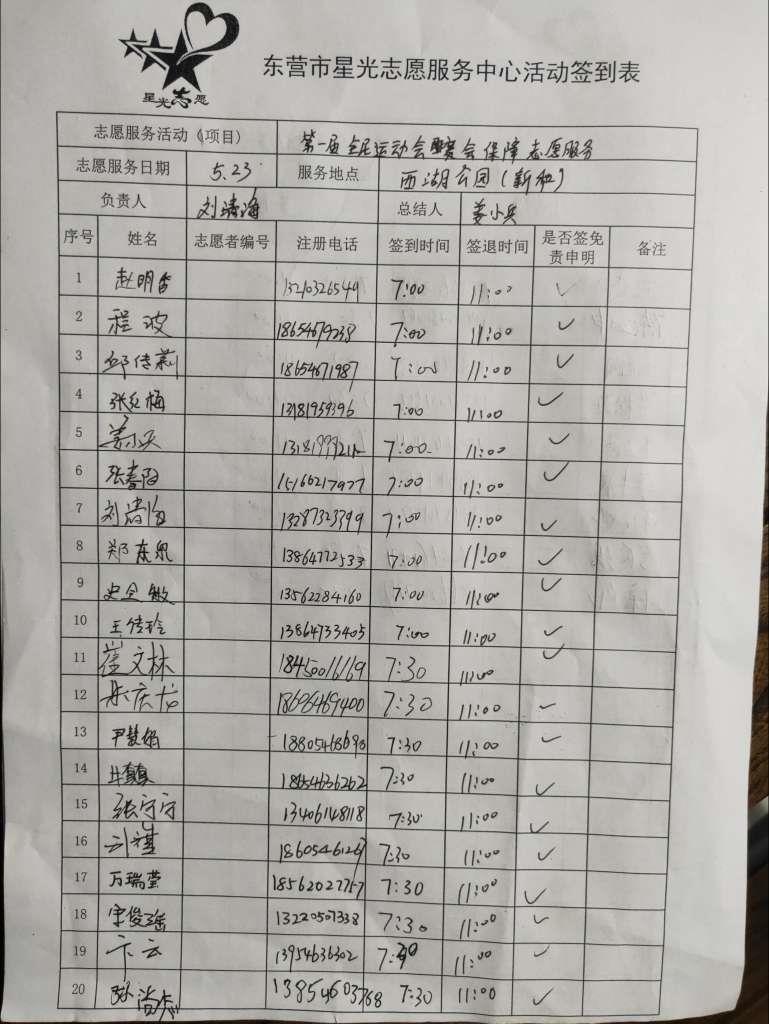 星光志愿
东营市星光志愿服务中心活动签到表
志愿服务活动（项目） 第一届全民运动会暨赛会保障志愿服务
志愿服务日期 5.23 服务地点 西湖公园（新和）
负责人 刘清海 总结人 姜小兵
序号 姓名 志愿者编号 注册电话 签到时间 签退时间 是否签免责申明 备注
1 赵明 13210326549 7:00 11:00 ✓
2 程波 18654679238 7:00 11:00 ✓
3 邱传莉 18654671987 7:00 11:00 ✓
4 张红梅 13181959396 7:00 11:00 ✓
5 姜小兵 7:00 11:00 ✓
6 张春阳 15166217977 7:00 11:00 ✓
7 刘清海 13287323399 7:00 11:00 ✓
8 郑东泉 13864772533 7:00 11:00 ✓
9 史全敏 13562284160 7:00 11:00 ✓
10 王传玲 13864733405 7:00 11:00 ✓
11 崔文林 18450016169 7:30 11:00 ✓
12 庆龙 18606469400 7:30 11:00 ✓
13 尹慧娟 18805468690 7:30 11:00 ✓
14 18654636262 7:30 11:00 ✓
15 张宁宁 13406148118 7:30 11:00 ✓
16 刘祺 18605461267 7:30 11:00 ✓
17 万瑞莹 18562027757 7:30 11:00 ✓
18 宋俊瑶 13220507338 7:30 11:00 ✓
19 卞云 13954636302 7:30 11:00 ✓
20 孙尚 13854603768 7:30 11:00 ✓